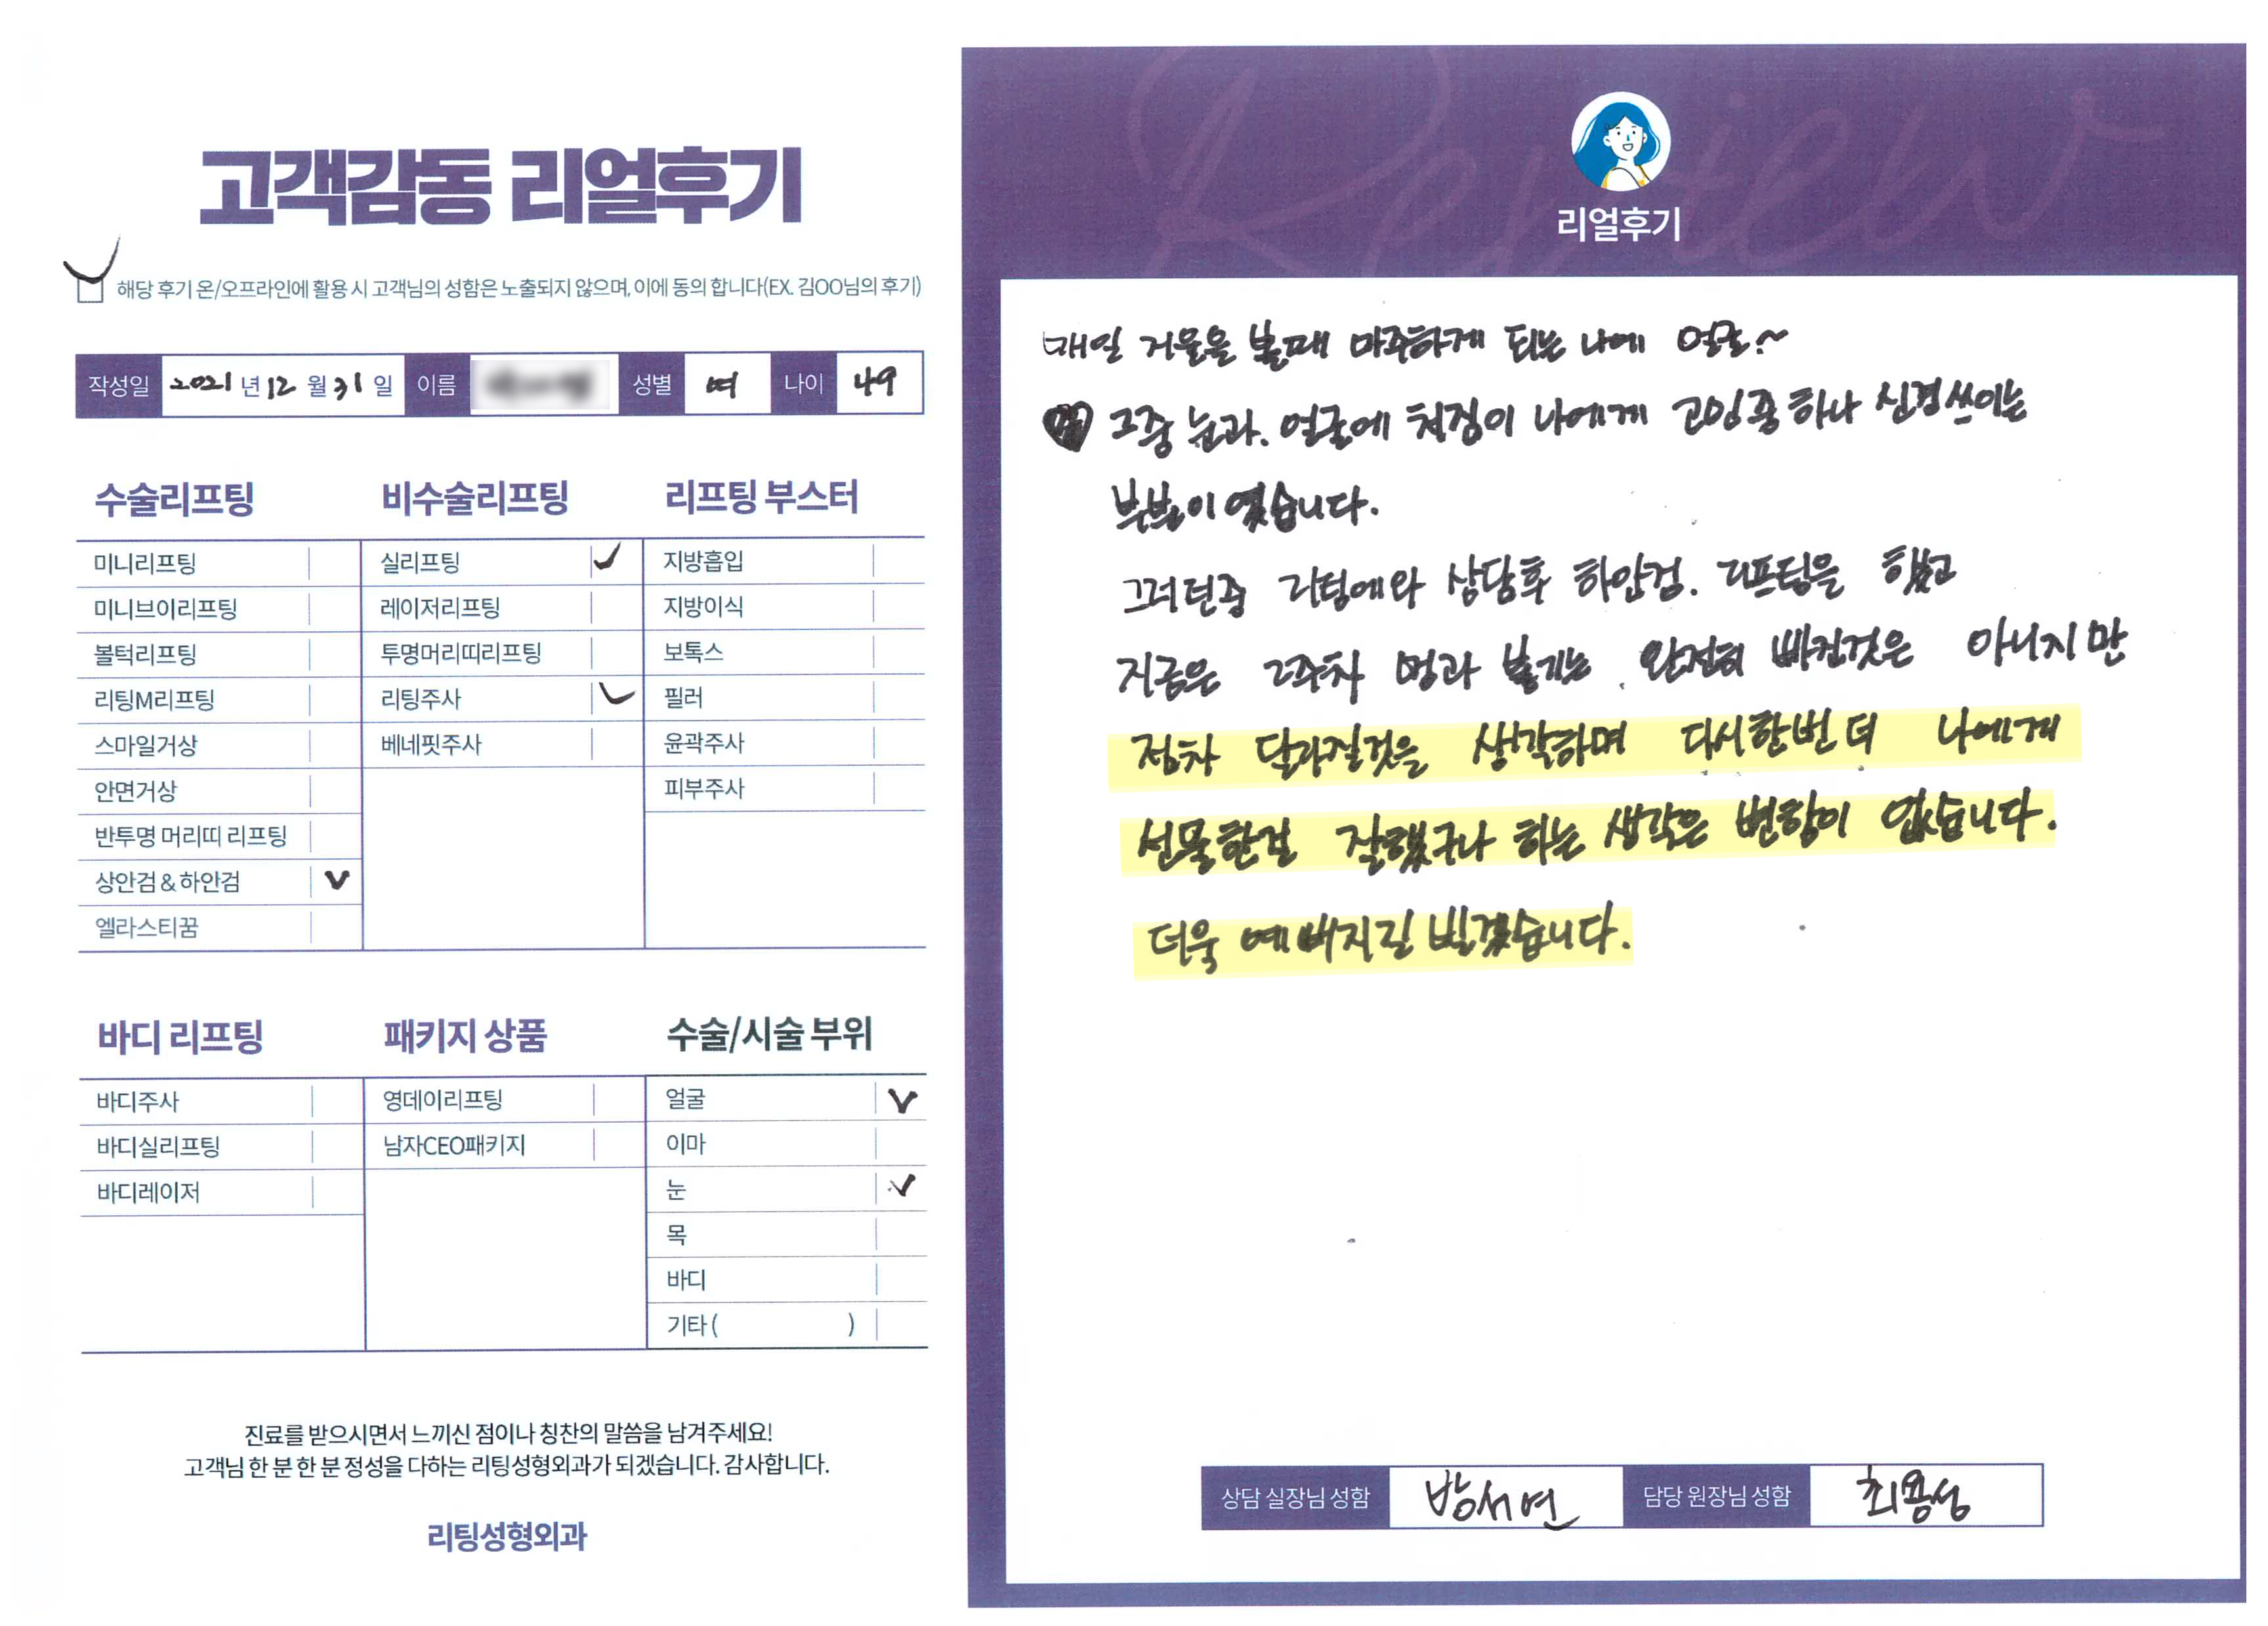 고객감동 리얼후기
해당 후기 온/오프라인에 활용 시 고객님의 성함은 노출되지 않으며, 이에 동의 합니다(EX. 김OO님의 후기)
작성일 2021 년 12 월 31 일 이름 성별 여 나이 49
수술리프팅
미니리프팅
미니브이리프팅
볼턱리프팅
리팅M리프팅
스마일거상
안면거상
반투명 머리띠 리프팅
상안검 & 하안검 ✓
엘라스티꿈
비수술리프팅
실리프팅 ✓
레이저리프팅
투명머리띠리프팅
리팅주사 ✓
베네핏주사
리프팅 부스터
지방흡입
지방이식
보톡스
필러
윤곽주사
피부주사
바디 리프팅
바디주사
바디실리프팅
바디레이저
패키지 상품
영데이리프팅
남자CEO패키지
수술/시술 부위
얼굴 ✓
이마
눈 ✓
목
바디
기타 ( )
진료를 받으시면서 느끼신 점이나 칭찬의 말씀을 남겨주세요!
고객님 한 분 한 분 정성을 다하는 리팅성형외과가 되겠습니다. 감사합니다.
리팅성형외과
Review
리얼후기
매일 거울을 볼때 마주하게 되는 나에 얼굴~
그중 눈과. 얼굴에 처짐이 나에게 고민중 하나 신경쓰이는
부분이 였습니다.
그러던중 리팅에와 상담후 하안검. 리프팅을 했고
지금은 2주차 멍과 붓기는 완전히 빠진것은 아니지만
점차 달라질것을 생각하며 다시한번 더 나에게
선물한걸 잘했구나 하는 생각은 변함이 없습니다.
더욱 예뻐지길 빌겠습니다.
상담 실장님 성함 방서연 담당 원장님 성함 최용성